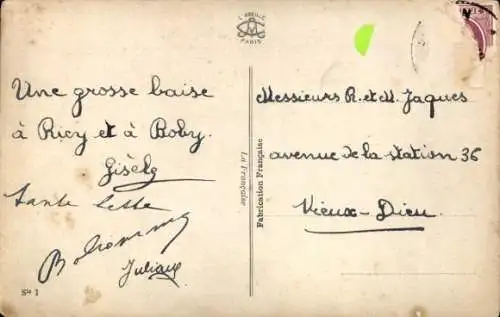 L'ABEILLE
PARIS
Une grosse baise
à Ricy et à Boby.
Gisèle
Tante Lette
Bobomme
Juliane
La Française
Fabrication Française
Messieurs R. et M. Jaques
avenue de la station 36
Vieux-Dieu